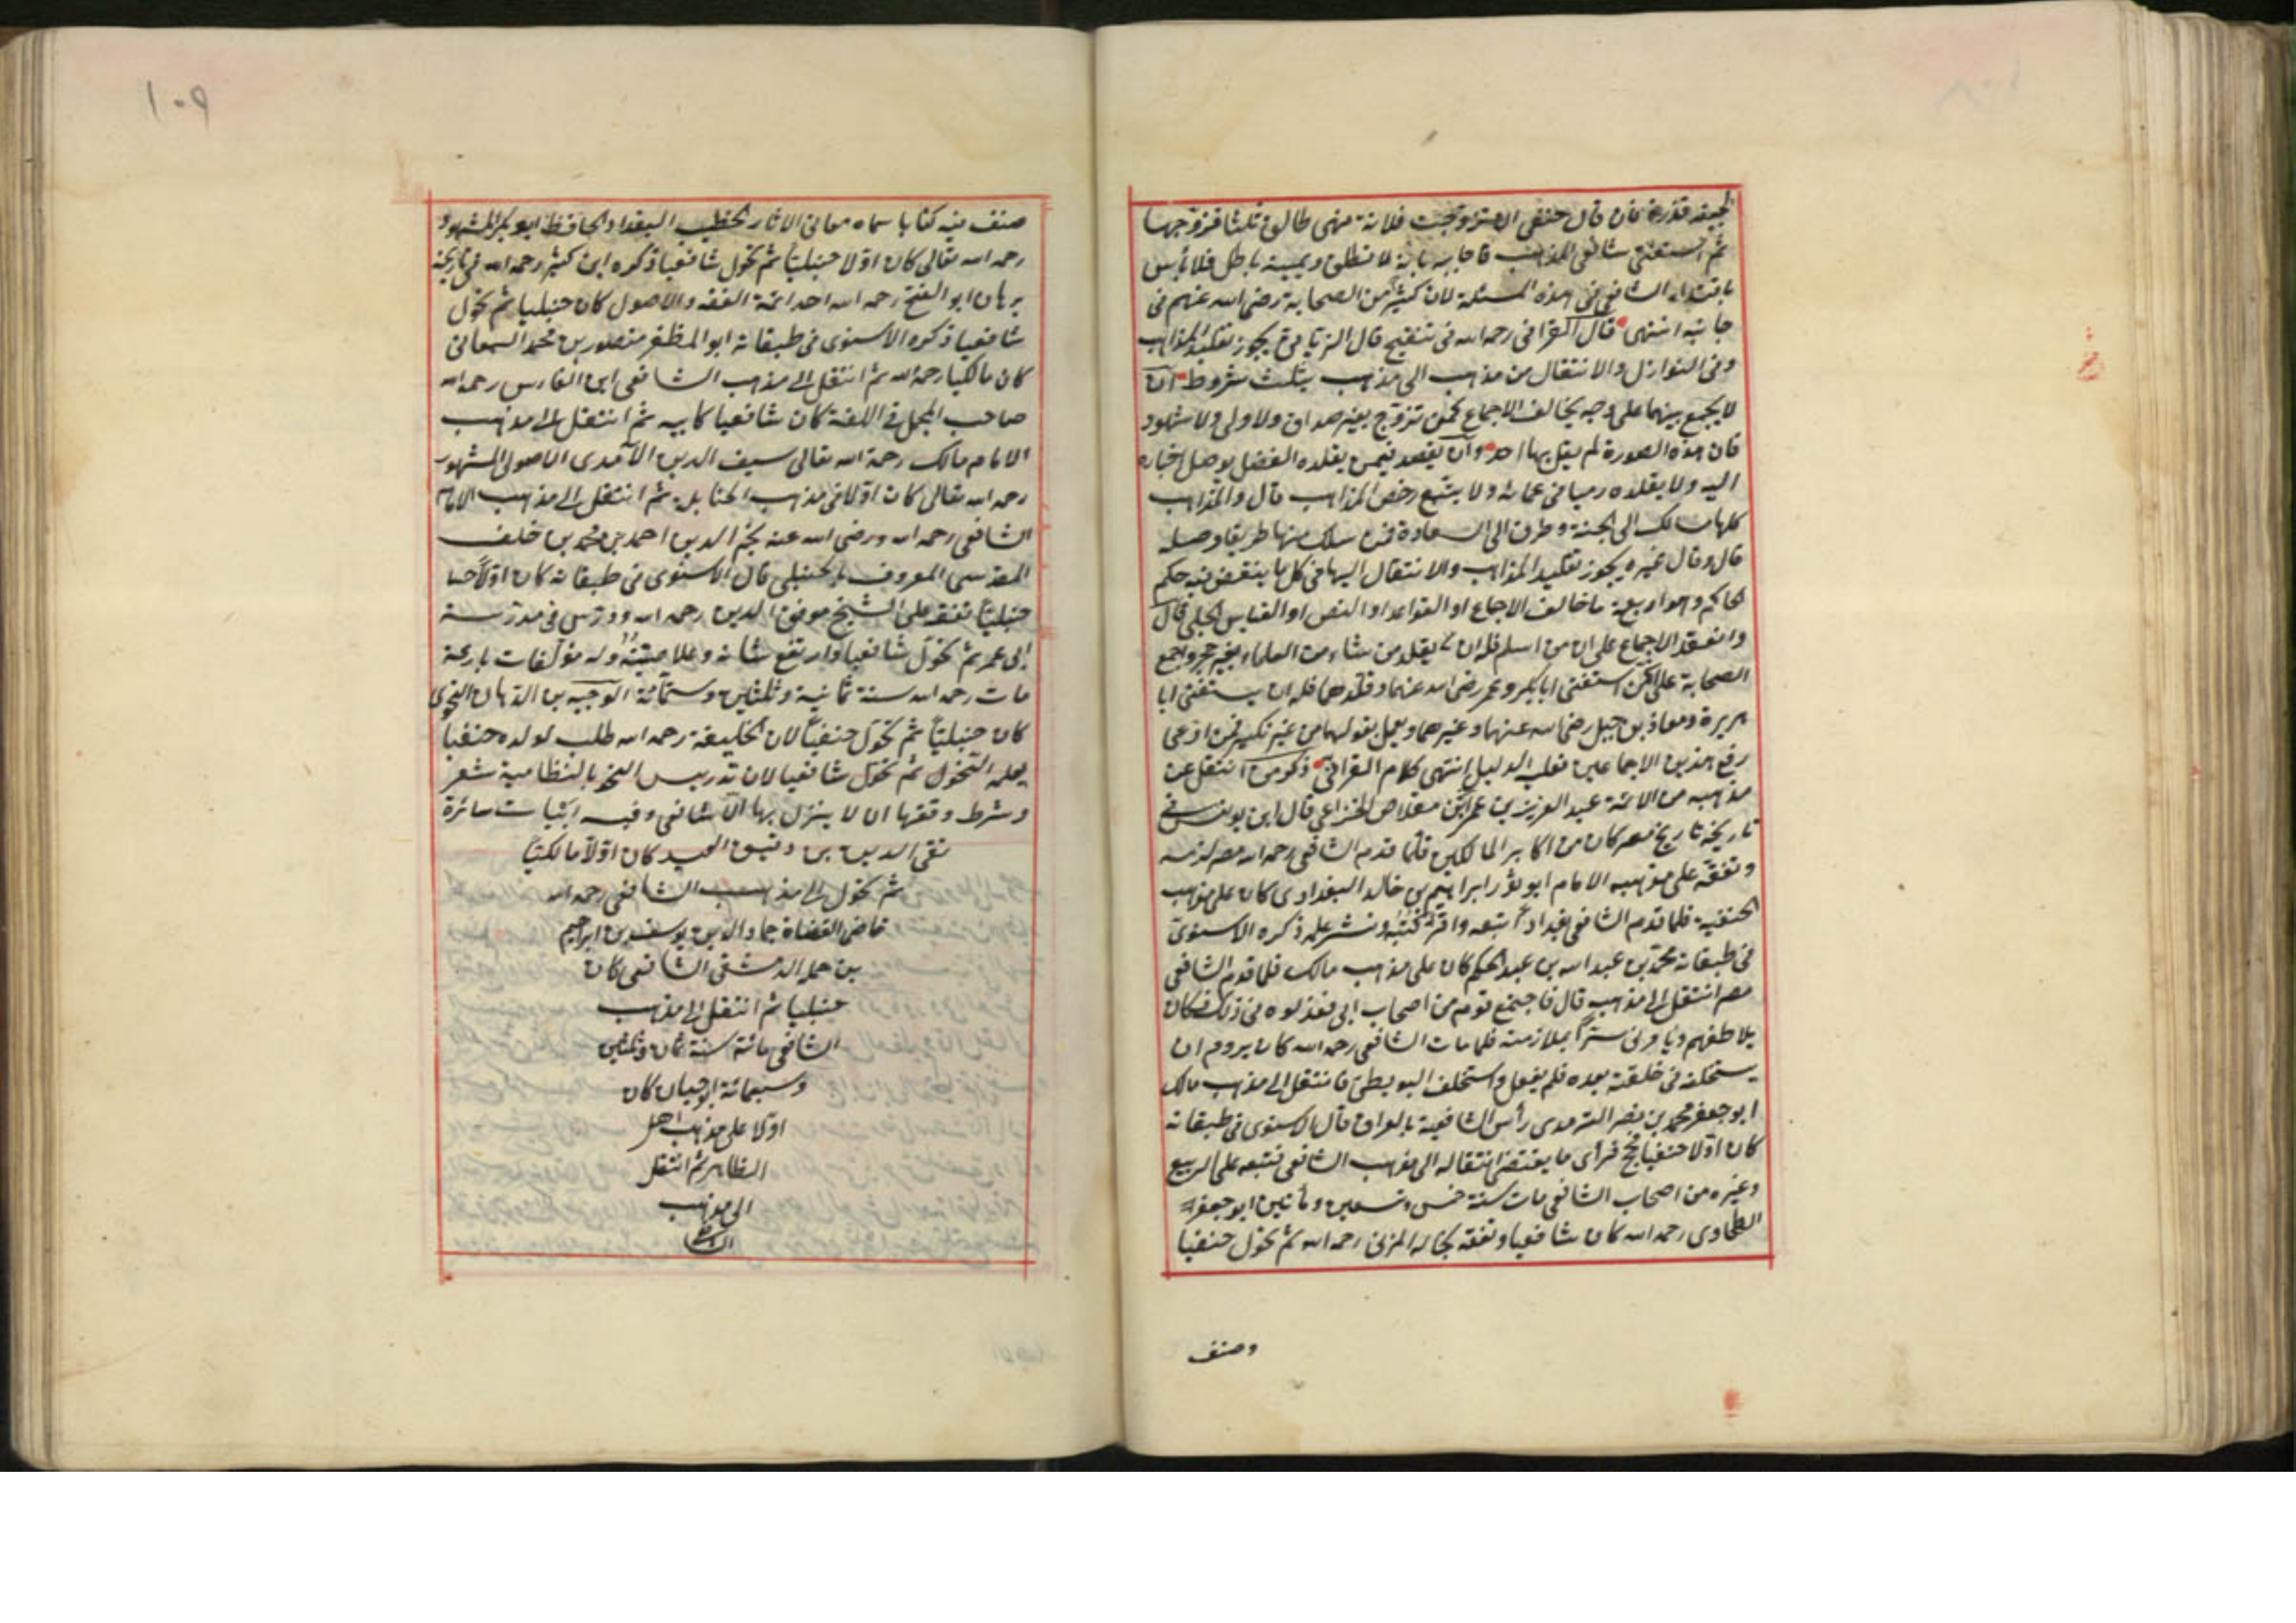 فان قال حنفى ان تزوجت فلانة فهى طالق ثلثا فتزوجها
ثم استفتى شافعى المذهب فاجابه بانه لا تطلق ويمينه باطل فلا بأس
باقتداء الشافعى فى هذه المسئلة لان كثيرا من الصحابة رضى الله عنهم فى
جانبه انتهى قال القرافى رحمه الله فى تنقيح قال الزناتى يجوز تقليد المذاهب
وفى النوازل والانتقال من مذهب الى مذهب بثلث شروط ان
لا يجمع بينهما على وجه يخالف الاجماع كمن تزوج بغير صداق ولا ولى ولا شهود
فان هذه الصورة لم يقل بها احد وان يعتقد فيمن يقلده الفضل بوصل اخباره
اليه ولا يقلده رميا فى عماية ولا يتتبع رخص المذاهب قال والمذاهب
كلها مسالك الى الجنة وطرق الى السعادة فمن سلك منها طريقا وصله
قال وقال غيره يجوز تقليد المذاهب والانتقال اليها فى كل ما ينتقض فيه حكم
الحاكم وهو اربعة ما خالف الاجماع او القواعد او النص او القياس الجلى قال
وانعقد الاجماع على ان من اسلم فله ان يقلد من شاء من العلماء بغير حجر واجمع
الصحابة على ان من استفتى ابا بكر وعمر رضى الله عنهما وقلدهما فله ان يستفتى ابا
هريرة ومعاذ بن جبل رضى الله عنهما وغيرهما ويعمل بقولهما من غير نكير فمن ادعى
رفع هذين الاجماعين فعليه الدليل انتهى كلام القرافى ذكر من انتقل عن
مذهبه من الائمة عبد العزيز بن عمر ابن مقلاص الخزاعى قال ابن يونس فى
تاريخه تاريخ مصر كان من اكابر المالكين فلما قدم الشافعى رحمه الله مصر لزمه
وتفقه على مذهبه الامام ابو ثور ابراهيم بن خالد البغدادى كان على مذهب
الحنفية فلما قدم الشافعى بغداد اتبعه وقرأ كتبه ونشر علمه ذكره الاسنوى
فى طبقاته محمد بن عبد الله بن عبد الحكم كان على مذهب مالك فلما قدم الشافعى
مصر انتقل الى مذهبه قال فاجتمع قوم من اصحاب ابى فعذلوه فى ذلك فكان
يلاطفهم ويأمرنى سترا بملازمته فلما مات الشافعى رحمه الله كان يروم ان
يستخلفه فى حلقته بعده فلم يفعل واستخلف البويطى فانتقل الى مذهب مالك
ابو جعفر محمد بن نصر الترمذى رأس الشافعية بالعراق قال الاسنوى فى طبقاته
كان اولا حنفيا فحج فرأى ما يقتضى انتقاله الى مذهب الشافعى فتفقه على الربيع
وغيره من اصحاب الشافعى مات سنة خمس وتسعين ومأتين ابو جعفر
الطحاوى رحمه الله كان شافعيا وتفقه بخاله المزنى رحمه الله ثم تحول حنفيا
وصنف
١٠٩
صنف فيه كتابا سماه معانى الاثار الخطيب البغداد الحافظ ابو بكر المشهور
رحمه الله تعالى كان اولا حنبليا ثم تحول شافعيا ذكره ابن كثير رحمه الله فى تاريخه
برهان ابو الفتح رحمه الله احد ائمة الفقه والاصول كان حنبليا ثم تحول
شافعيا ذكره الاسنوى فى طبقاته ابو المظفر منصور بن محمد السمعانى
كان مالكيا رحمه الله ثم انتقل الى مذهب الشافعى ابن الفارس رحمه الله
صاحب المجمل فى اللغة كان شافعيا كابيه ثم انتقل الى مذهب
الامام مالك رحمه الله تعالى سيف الدين الآمدى الاصولى المشهور
رحمه الله تعالى كان اولا فى مذهب الحنابلة ثم انتقل الى مذهب الامام
الشافعى رحمه الله ورضى الله عنه نجم الدين احمد بن محمد بن خلف
المقدسى المعروف بالحنبلى قال الاسنوى فى طبقاته كان اولا
حنبليا تفقه على الشيخ موفق الدين رحمه الله ودرس فى مدرسة
ابى عمر ثم تحول شافعيا وارتفع شانه وعلا صيته وله مؤلفات بارعة
مات رحمه الله سنة ثمانية وثلثين وستمائة الوجيه بن الدهان النحوى
كان حنبليا ثم تحول حنفيا لان الخليفة رحمه الله طلب لولده حنفيا
يعلمه النحو ثم تحول شافعيا لان تدريس النحو بالنظامية شغر
وشرط وقفها ان لا ينزل بها الا شافعى وفيه ابيات سائرة
تقى الدين بن دقيق العيد كان اولا مالكيا
ثم تحول الى مذهب الشافعى رحمه الله
قاضى القضاة جمال الدين يوسف بن ابراهيم
بن جملة الدمشقى الشافعى كان
حنبليا ثم انتقل الى مذهب
الشافعى مات سنة ثمان وثلثين
وسبعمائة ابو حيان كان
اولا على مذهب اهل
الظاهر ثم انتقل
الى مذهب